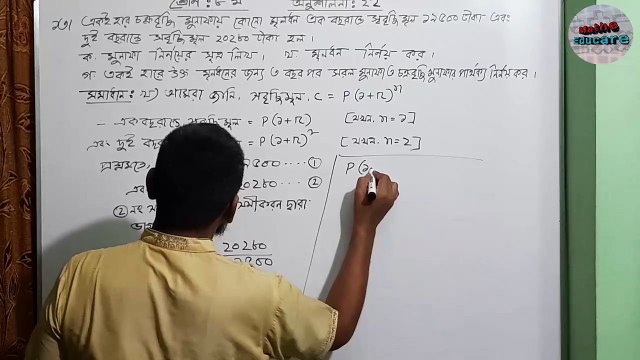 শ্রেণি: ৮ম অনুশীলনী: ২.২
Maths Educare
২৩। একই হারে চক্রবৃদ্ধি মুনাফায় কোনো মূলধন এক বছরান্তে সবৃদ্ধিমূল ১৯৫০০ টাকা এবং
দুই বছরান্তে সবৃদ্ধিমূল ২০২৮০ টাকা হল।
ক. মুনাফা নির্ণয়ের সূত্র লিখ। খ. মূলধন নির্ণয় কর।
গ. একই হারে উক্ত মূলধনের জন্য ৩ বছর পর সরল মুনাফা ও চক্রবৃদ্ধি মুনাফার পার্থক্য নির্ণয় কর।
সমাধান: খ) আমরা জানি, সবৃদ্ধিমূল, C = P(১+r)ⁿ
∴ একবছরান্তে সবৃদ্ধিমূল = P(১+r) [যখন, n = ১]
এবং দুই বছরান্তে = P(১+r)² [যখন, n = 2]
প্রশ্নমতে, ৫০০ .... ①
এবং 20280 .... ②
② নং সমীকরণ দ্বারা
ভাগ
20280
P(১